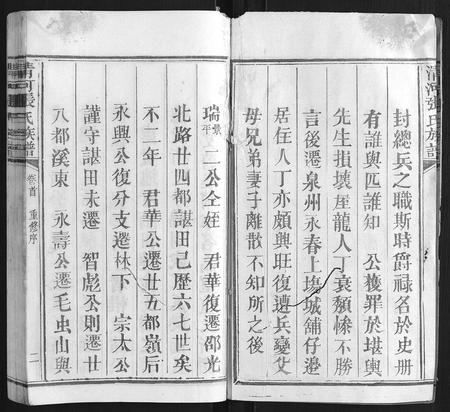 清河張氏族譜
封總兵之職斯時爵祿名於史册
有誰與匹誰知　公穫罪於堪輿
先生損壞坒龍人丁衰頽慘不勝
言後遷泉州永春上塲城舖仔邉
居住人丁亦頗興旺復遭兵燹艾
母兄弟妻子離散不知所之後
瑞紫平二公仝姪　君華復遷邵光
北路廿四都諶田已歷六七世矣
不二年　君華公遷廿五都嶺后
永興公復分支遷林下　宗太公
謹守諶田未遷　智彪公則遷廿
八都溪東　永壽公遷毛虫山與
清河張氏族譜
卷首　重修序
二